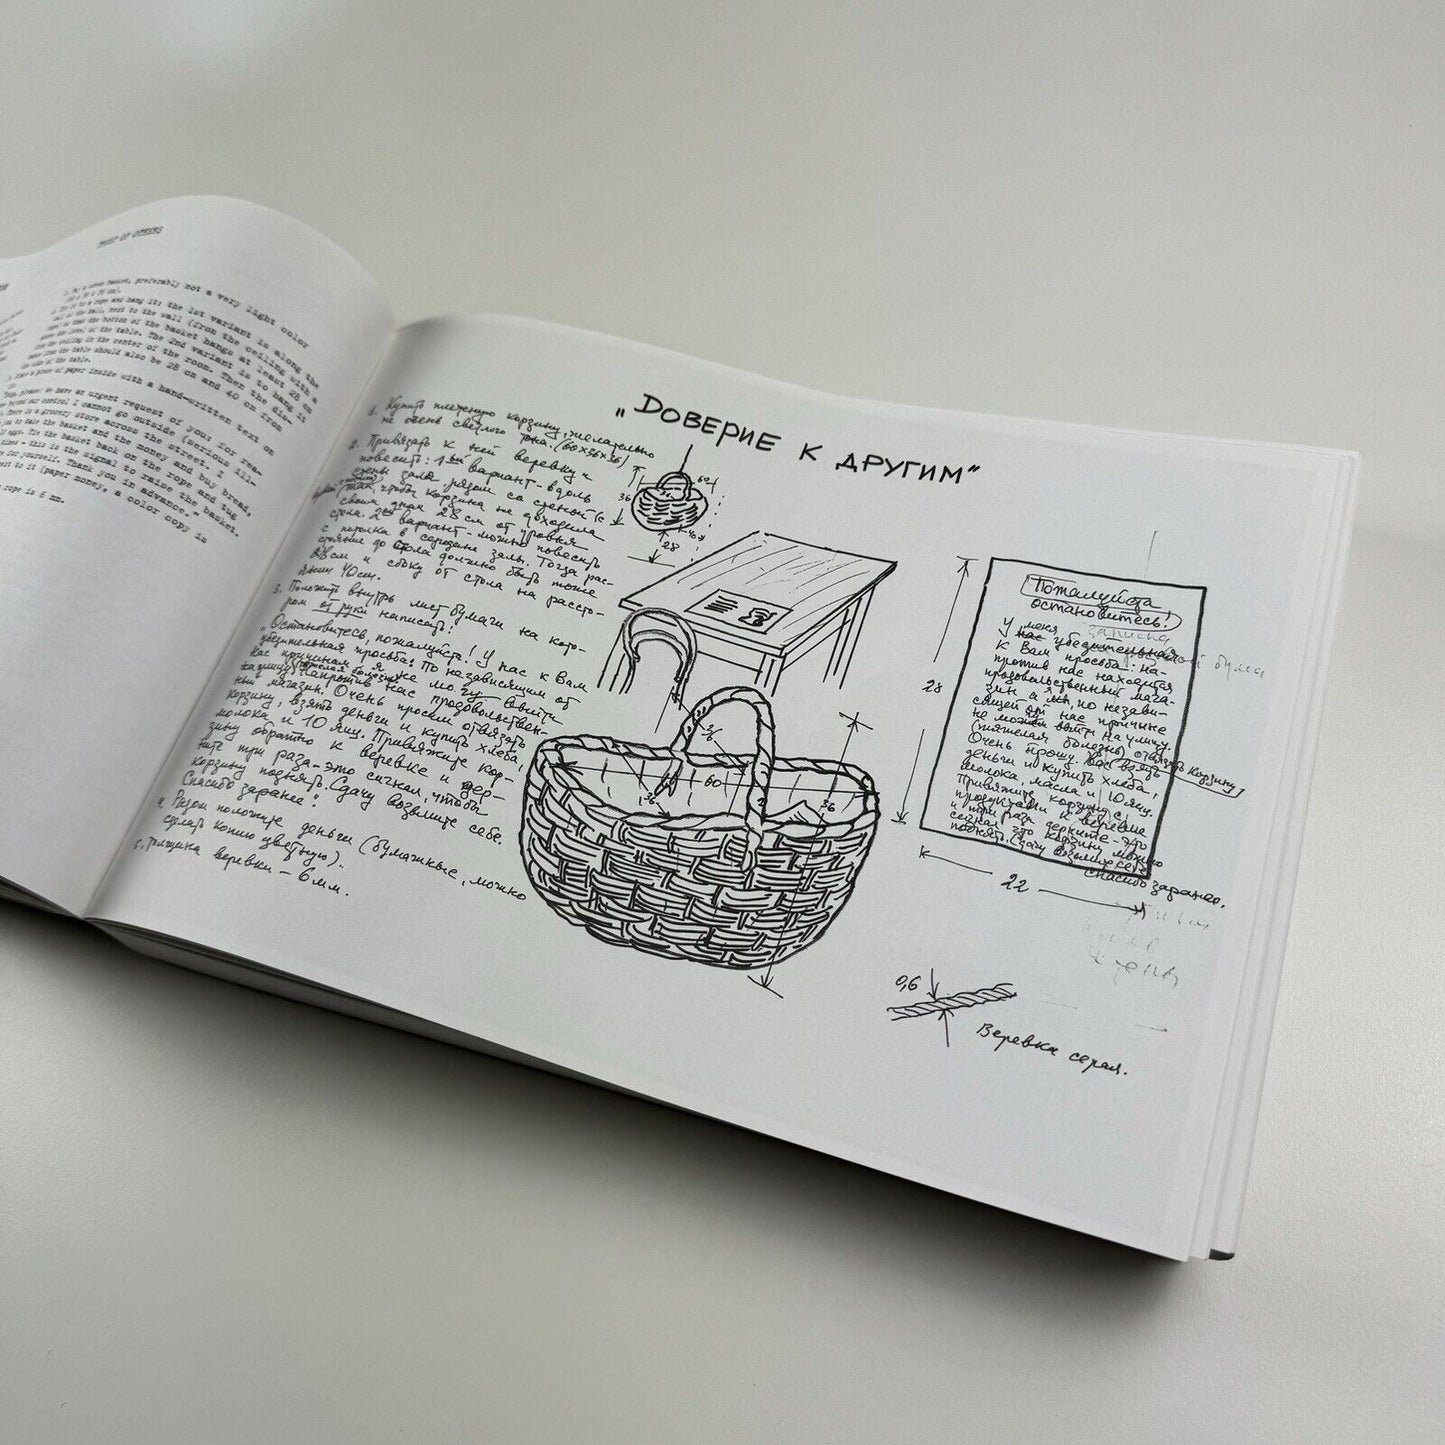 TRUST OF OTHERS
1. Buy a woven basket, preferably not a very light color
2. Tie it to a rope and hang it: the 1st variant is along the
wall of the hall, next to the wall (from the ceiling with a
rope) so that the bottom of the basket hangs at least 28 cm
above the level of the table. The 2nd variant is to hang it
from the ceiling in the center of the room. Then the dis-
tance from the table should also be 28 cm and 40 cm from
the side of the table.
a piece of paper inside with a hand-written text on
please! We have an urgent request of you: for rea-
beyond our control I cannot go outside (serious ill-
There is a grocery store across the street. I
you to take the basket and the money and buy bread,
eggs. Tie the basket back on the rope and tug
times - this is the signal to raise the basket.
for yourself. Thank you in advance."
next to it (paper money, a color copy is
rope is 6 mm.
„Доверие к другим"
1. Купить плетеную корзину, желательно
не очень светлого тона. (60x36x36)
2. Привязать к ней веревку и
повесить: 1ый вариант - вдоль
стены зала рядом со стеной (с
так, чтобы корзина не доходила
своим дном 28 см от уровня
стола. 2ой вариант - можно повесить
с потолка в середине залы. Тогда рас-
стояние до стола должно быть тоже
28см и сбоку от стола на рассто-
янии 40см.
3. Положить внутрь лист бумаги на кото-
ром от руки написать:
„Остановитесь, пожалуйста! У нас к Вам
убедительная просьба: По независящим от
нас причинам я не могу выйти
на улицу (тяжелая болезнь). Напротив нас продовольствен-
ный магазин. Очень просим отвязать
корзину, взять деньги и купить хлеба,
молока и 10 яиц. Привяжите кор-
зину обратно к веревке и дер-
ните три раза - это сигнал, чтобы
корзину поднять. Сдачу возьмите себе.
Спасибо заранее".
4. Рядом положите деньги (бумажные, можно
сделать копию цветную).
5. Толщина веревки - 6 мм.
36
60
40
28
36
60
36
36
28
Пожалуйста
остановитесь!
записка
У меня
нас убедительная
к Вам просьба: на-
против нас находится
продовольственный мага-
зин, а я, по незави-
сящей от нас причине
не можем выйти на улицу.
(тяжелая болезнь) отвязать корзину,
Очень прошу Вас взять
деньги и купить хлеба,
молока, масла и 10 яиц.
Привяжите корзину с
продуктами к веревке
и три раза дерните - это
сигнал, что корзину можно
поднять. Сдачу возьмите себе.
Спасибо заранее.
22
0,6
Веревка серая.